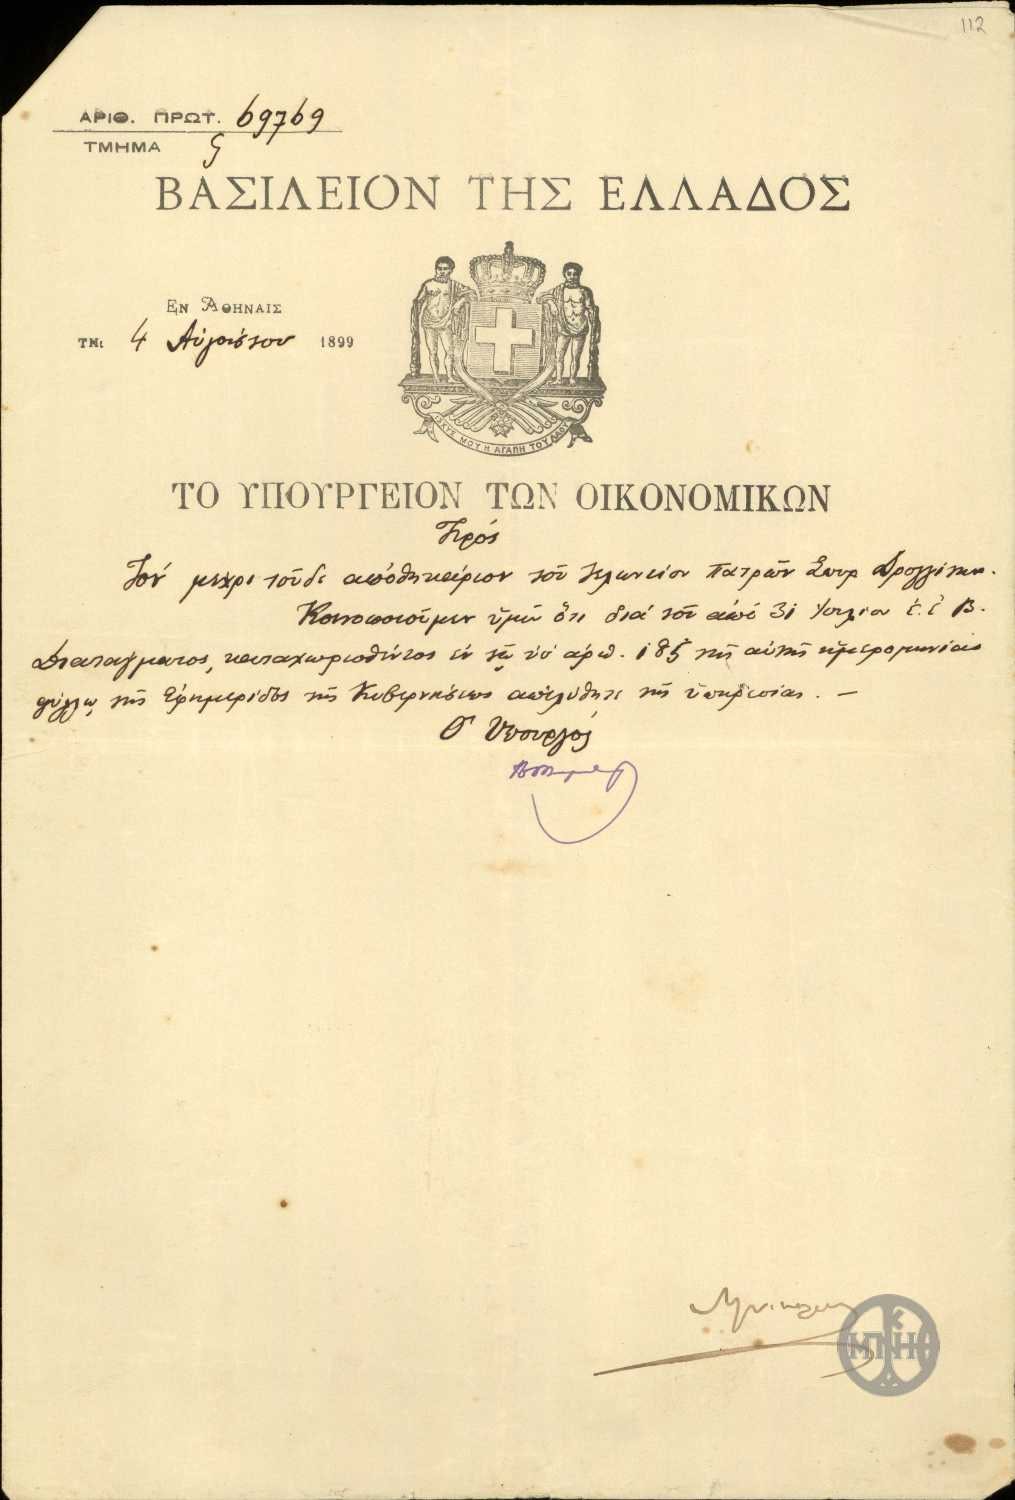 112
ΑΡΙΘ. ΠΡΩΤ. 69769
ΤΜΗΜΑ
ΒΑΣΙΛΕΙΟΝ ΤΗΣ ΕΛΛΑΔΟΣ
ΕΝ ΑΘΗΝΑΙΣ
ΤΗι 4 Αὐγούστου 1899
ΙΣΧΥΣ ΜΟΥ Η ΑΓΑΠΗ ΤΟΥ ΛΑΟΥ
ΤΟ ΥΠΟΥΡΓΕΙΟΝ ΤΩΝ ΟΙΚΟΝΟΜΙΚΩΝ
Πρός
Τόν μέχρι τοῦδε ἀποθηκάριον τοῦ Τελωνείου Πατρῶν Σπυρ
Κοινοποιοῦμεν ὑμῖν ὅτι διά τοῦ ἀπό 31 Ἰουλίου ἐ. ἔ. Β.
Διατάγματος, καταχωρισθέντος ἐν τῷ ὑπ' ἀριθ. 185 τῆς αὐτῆς ἡμερομηνίας
φύλλῳ τῆς Ἐφημερίδος τῆς Κυβερνήσεως ἀπελύθητε τῆς ὑπηρεσίας. —
Ὁ Ὑπουργός
ΜΠ ΝΗ